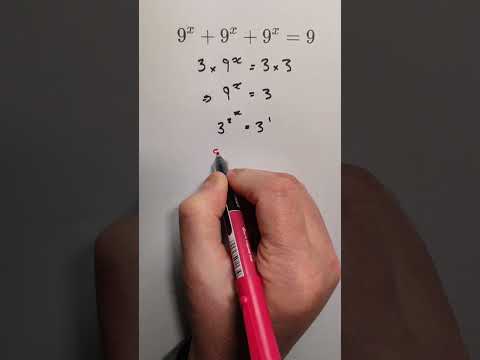 9^x + 9^x + 9^x = 9
3 × 9^x = 3 × 3
⇒ 9^x = 3
3^{2x} = 3^1